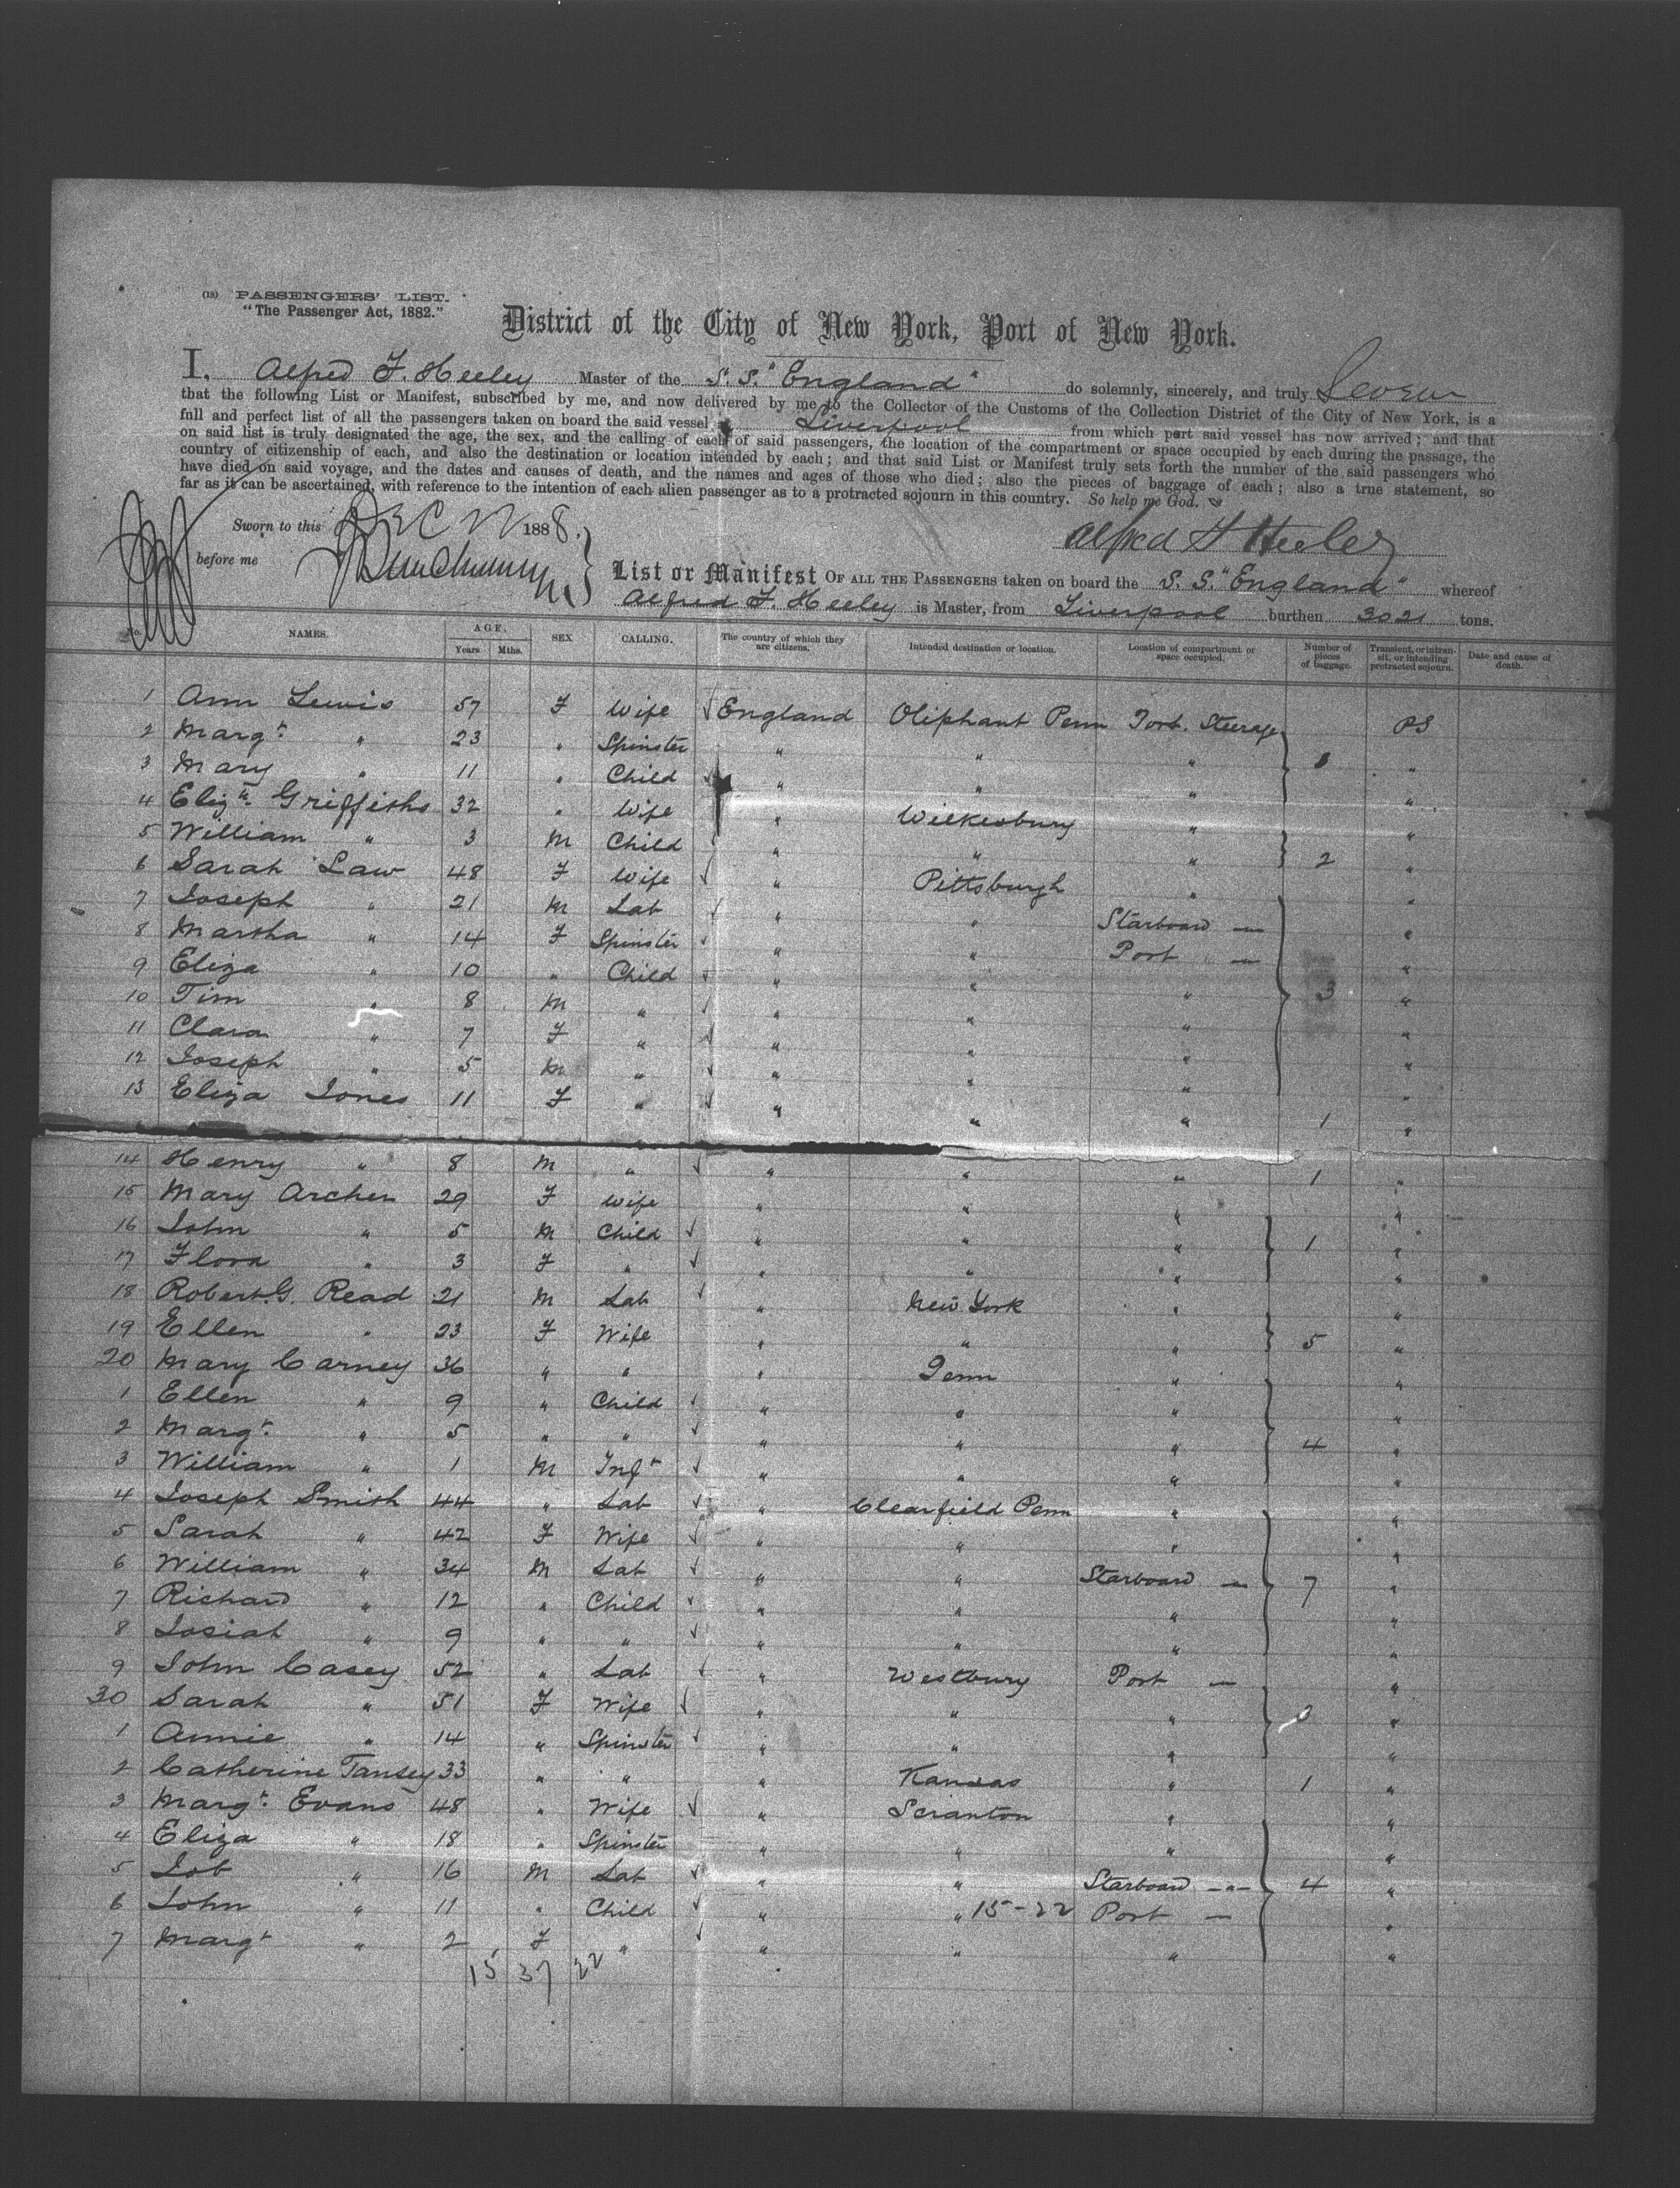 (18) PASSENGERS' LIST.
"The Passenger Act, 1882."
District of the City of New York, Port of New York.
I, Alfred F. Heeley Master of the S. S. "England" do solemnly, sincerely, and truly Swear
that the following List or Manifest, subscribed by me, and now delivered by me to the Collector of the Customs of the Collection District of the City of New York, is a
full and perfect list of all the passengers taken on board the said vessel at Liverpool from which port said vessel has now arrived; and that
on said list is truly designated the age, the sex, and the calling of each of said passengers, the location of the compartment or space occupied by each during the passage, the
country of citizenship of each, and also the destination or location intended by each; and that said List or Manifest truly sets forth the number of the said passengers who
have died on said voyage, and the dates and causes of death, and the names and ages of those who died; also the pieces of baggage of each; also a true statement, so
far as it can be ascertained, with reference to the intention of each alien passenger as to a protracted sojourn in this country. So help me God.
Sworn to this DEC 1888.
before me
Alfred F Heeley
List or Manifest OF ALL THE PASSENGERS taken on board the S. S. "England" whereof
Alfred F. Heeley is Master, from Liverpool burthen 3021 tons.
No. NAMES. AGE. Years Mths. SEX CALLING. The country of which they are citizens. Intended destination or location. Location of compartment or space occupied. Number of pieces of baggage. Transient, or intransit, or intending protracted sojourn. Date and cause of death.
1 Ann Lewis 57 F Wife England Oliphant Penn Port. Steerage PS
2 Margt. " 23 " Spinster " " " "
3 Mary " 11 " Child " " " "
4 Elizth. Griffiths 32 " Wife " Wilkesbury " "
5 William " 3 M Child " " " 2 "
6 Sarah Law 48 F Wife " Pittsburgh " "
7 Joseph " 21 M Lab " " Starboard " "
8 Martha " 14 F Spinster " " Port " "
9 Eliza " 10 " Child " " " 3 "
10 Tim " 8 M " " " " "
11 Clara " 7 F " " " " "
12 Joseph " 5 M " " " " "
13 Eliza Jones 11 F " " " " 1 "
14 Henry " 8 M " " " " 1 "
15 Mary Archer 29 F Wife " " " "
16 John " 5 M Child " " " 1 "
17 Flora " 3 F " " " " "
18 Robert. G. Read 21 M Lab " New York " "
19 Ellen " 23 F Wife " " " 5 "
20 Mary Carney 36 " " " Penn " "
1 Ellen " 9 " Child " " " "
2 Margt. " 5 " " " " " 4 "
3 William " 1 M Inft " " " "
4 Joseph Smith 44 " Lab " Clearfield Penn " "
5 Sarah " 42 F Wife " " " "
6 William " 34 M Lab " " Starboard " 7 "
7 Richard " 12 " Child " " " "
8 Josiah " 9 " " " " " "
9 John Casey 52 " Lab " Westbury Port " "
30 Sarah " 51 F Wife " " " "
1 Annie " 14 " Spinster " " " "
2 Catherine Tansey 33 " " " Kansas " 1 "
3 Margt. Evans 48 " Wife " Scranton " "
4 Eliza " 18 " Spinster " " " "
5 Job " 16 M Lab " " Starboard " 4 "
6 John " 11 " Child " " 15-22 Port " "
7 Margt " 2 F " " " " "
15 37 22